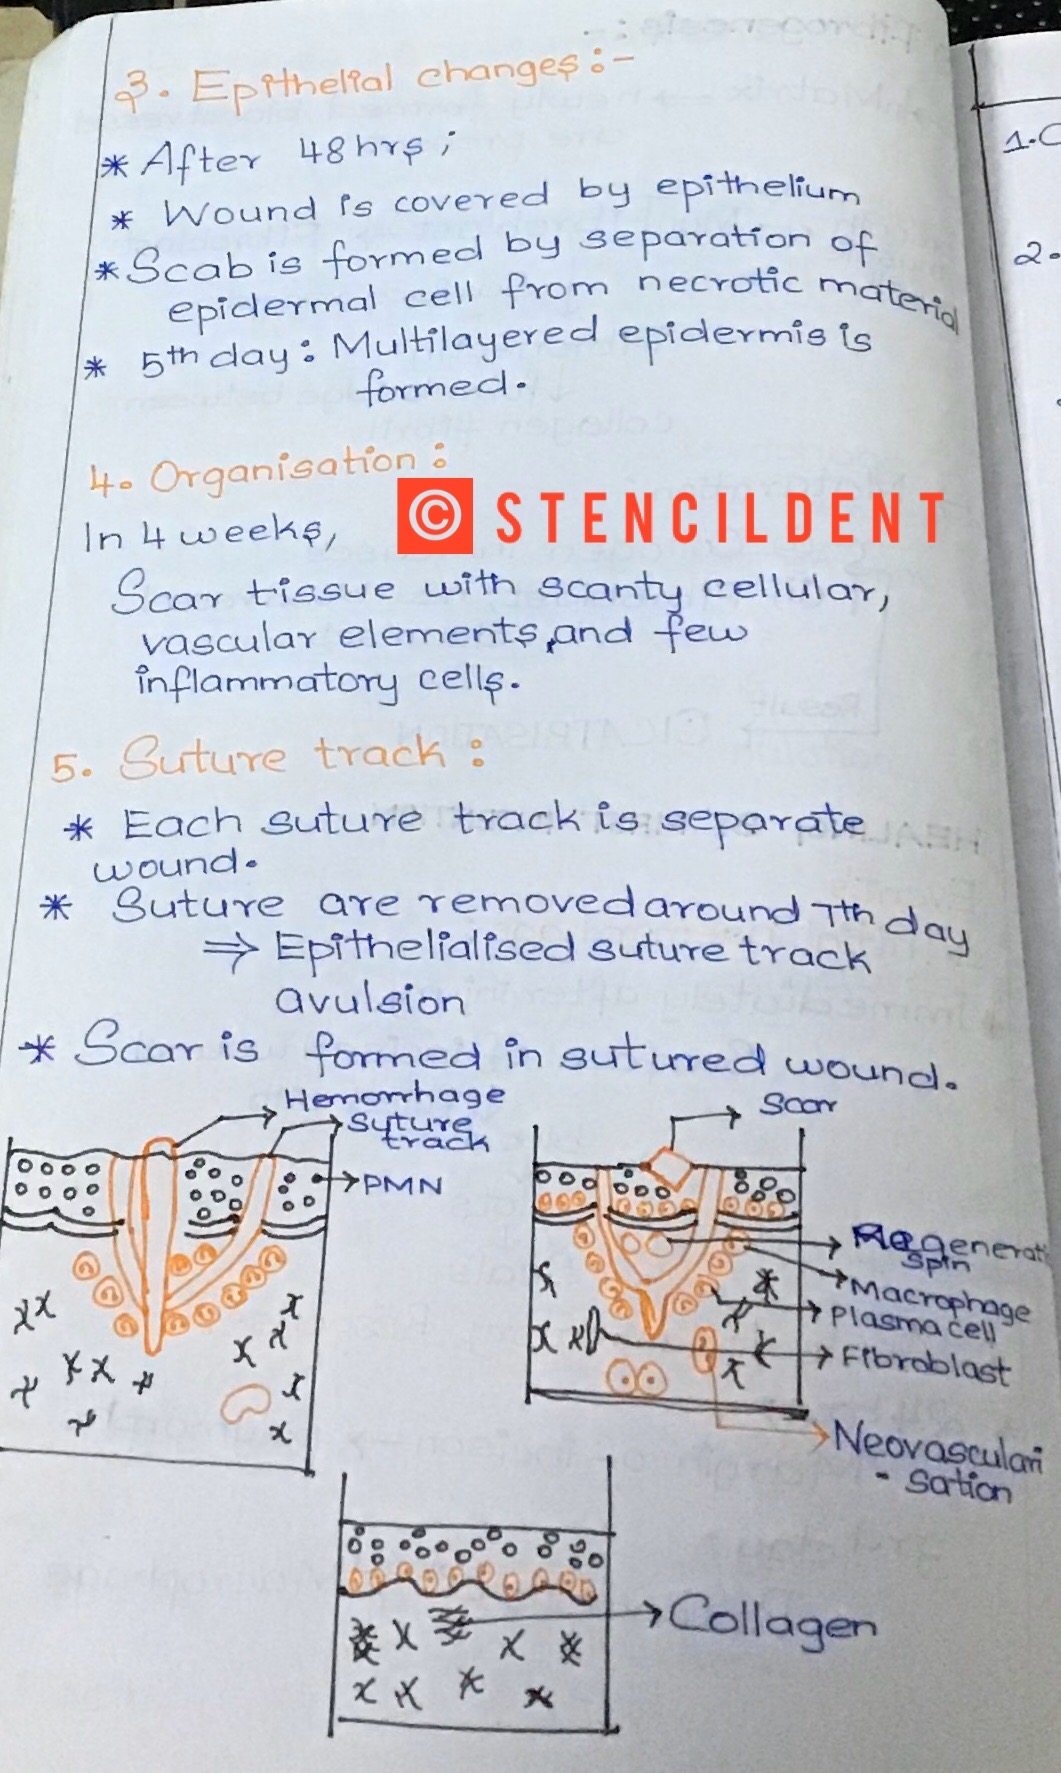 3. Epithelial changes :-
* After 48 hrs ;
* Wound is covered by epithelium
* Scab is formed by separation of
epidermal cell from necrotic material
* 5th day : Multilayered epidermis is
formed.
4. Organisation :
© STENCILDENT
In 4 weeks,
Scar tissue with scanty cellular,
vascular elements, and few
inflammatory cells.
5. Suture track :
* Each suture track is separate
wound.
* Suture are removed around 7th day
⇒ Epithelialised suture track
avulsion
* Scar is formed in sutured wound.
Hemorrhage
Suture
track
PMN
Scar
Regenerat
Spin
Macrophage
Plasma cell
Fibroblast
Neovasculari
- sation
Collagen
1.
2.